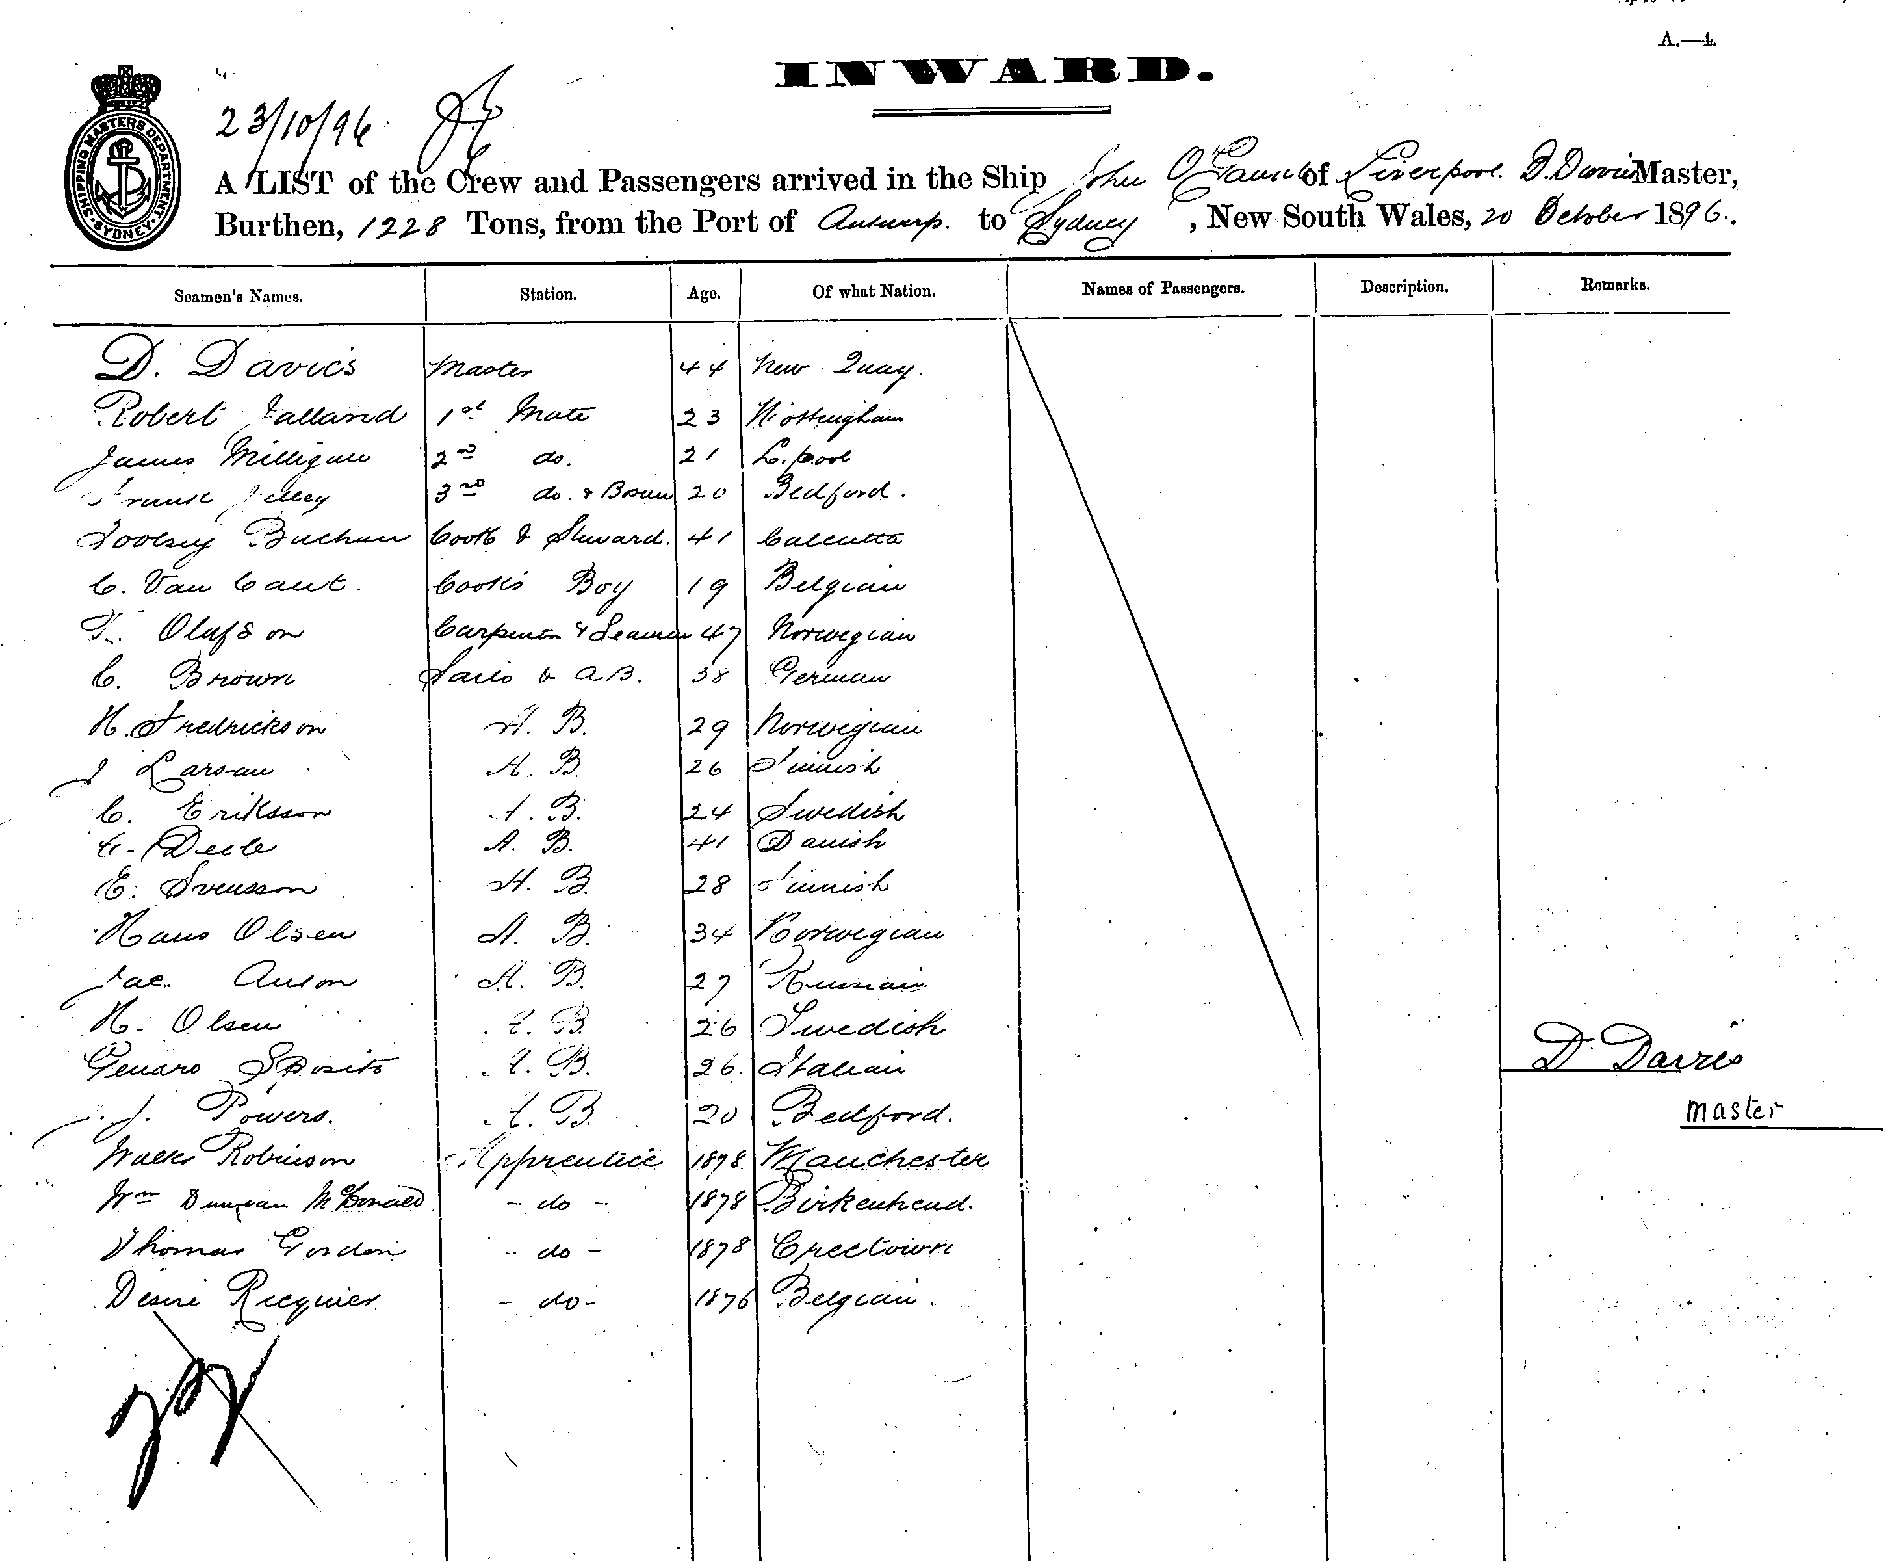 A.—4.
INWARD.
SHIPPING MASTERS DEPARTMENT SYDNEY
23/10/96
A LIST of the Crew and Passengers arrived in the Ship John O Gaunt of Liverpool. D. Davies Master,
Burthen, 1228 Tons, from the Port of Antwerp. to Sydney, New South Wales, 20 October 1896.
Seamen's Names. Station. Age. Of what Nation. Names of Passengers. Description. Remarks.
D. Davies Master 44 New Quay.
Robert 1st Mate 23 Nottingham
James Milligan 2nd do. 21 L.pool
Frank 3rd do. & Bosun 20 Bedford.
Buchan Cook & Steward. 41 Calcutta
C. Van Caut. Cooks Boy 19 Belgian
T. Olafson Carpenter & Seaman 47 Norwegian
C. Brown Sails & A.B. 38 German
H. Fredrickson A. B. 29 Norwegian
J Larsan A. B. 26 Finnish
C. Eriksson A. B. 24 Swedish
A. B. 41 Danish
E. Svensson A. B. 28 Finnish
Hans Olsen A. B. 34 Norwegian
Jac. Anton A. B. 27 Russian
H. Olsen A. B. 26 Swedish
Genaro Sposito A. B. 26. Italian
J. Powers. A. B. 20 Bedford.
Walter Robinson Apprentice 1878 Manchester
Wm Duncan McDonald - do - 1878 Birkenhead.
Thomas Gordon - do - 1878 Creetown
Desire Ricquier - do - 1876 Belgian.
D. Davies
Master